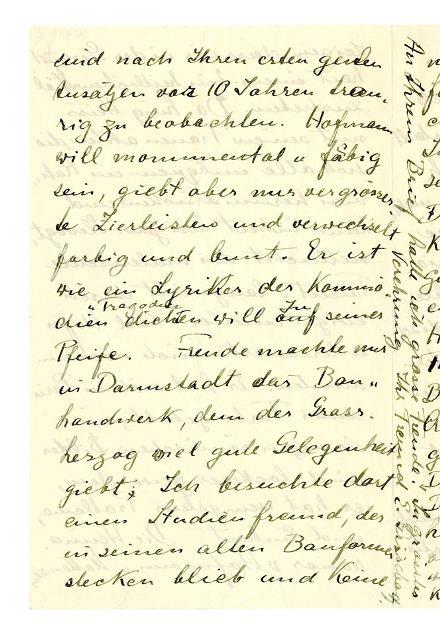 sind nach Ihren ersten guten
Ansätzen vor 10 Jahren trau-
rig zu beobachten. Hofmann
will monumental u. fäbig
sein, giebt aber nur vergrösser-
te Zierleisten und verwechselt
farbig und bunt. Er ist
wie ein Lyriker der Kommö-
u. Tragödien
dien dichten will auf seiner
Pfeife. Freude machte mir
in Darmstadt das Bau-
handwerk, dem der Gross-
herzog viel gute Gelegenheit
giebt. Ich besuchte dort
einen Studienfreund, der
in seinen alten Bauformen
stecken blieb und keine
An Ihrem Brief hatte ich grosse Freude. In
Verehrung Ihr Freund E.